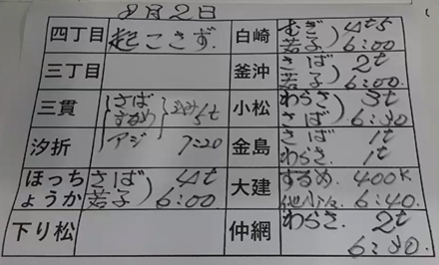 8月2日
四丁目 起こさず. 白崎 むぎ 若子 4t5 6:00
三丁目 釜沖 さば 若子 2t 6:00.
三貫 さば するめ 込み5t 小松 わらさ さば 3t 6:30
汐折 アジ 7:20 金島 さば 1t わらさ. 1t
ほっちょうか さば 若子 4t 6:00 大建 するめ. 400K 6:40.
下り松 仲網 わらさ. 2t 6:30.